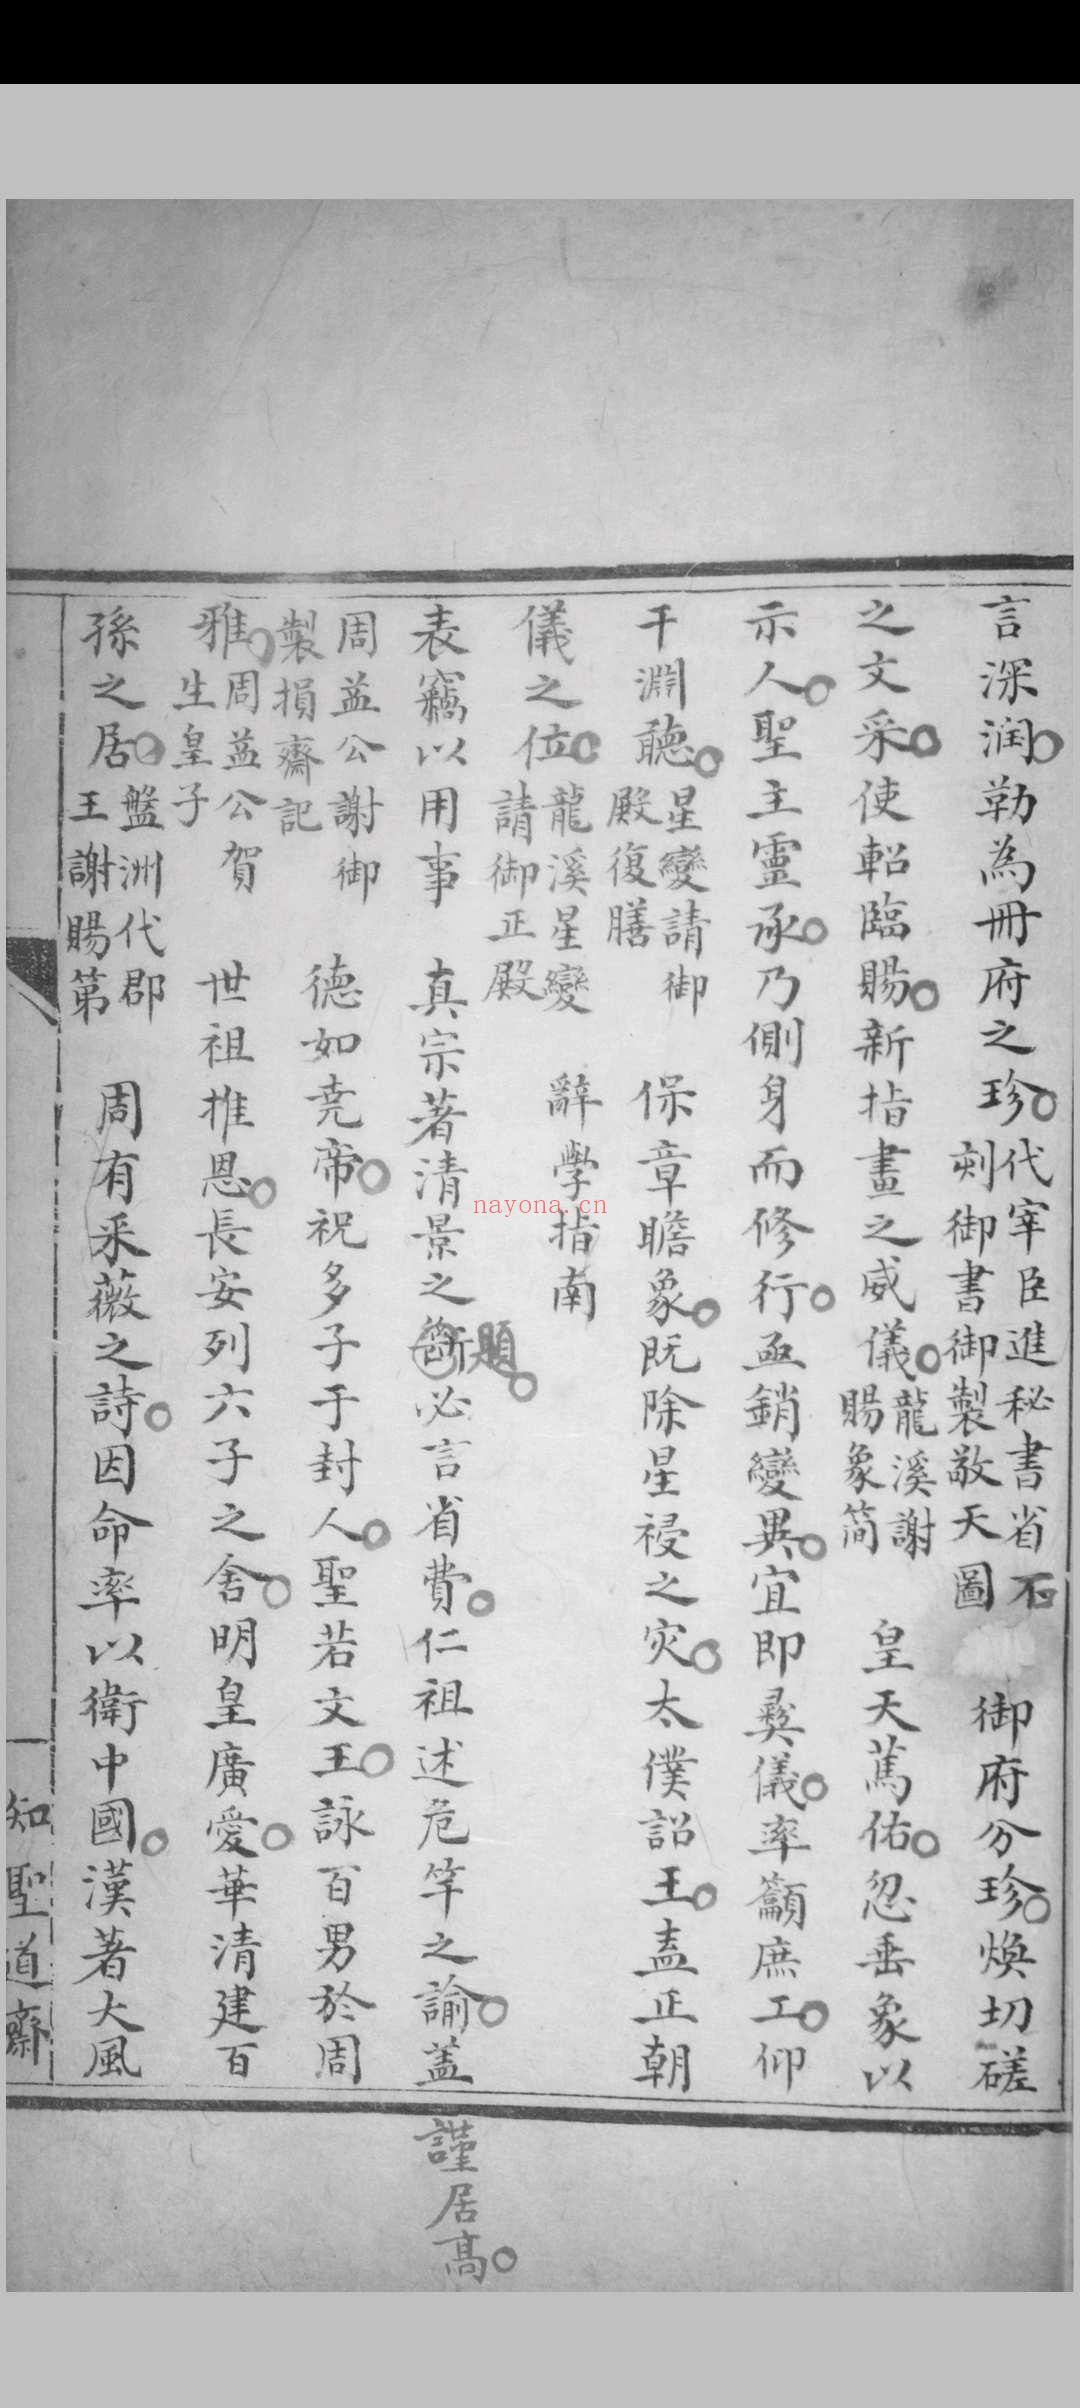 言深润勒為冊府之珍代宰臣進秘書省石刻御書御製敬天圖 御府分珍煥切磋
之文采使軺臨賜新指畫之威儀龍溪謝賜象简 皇天篤佑忽垂象以
示人聖主靈承乃側身而修行亟銷變異宜即彛儀率籲庶工仰
干淵聴星變請御殿復膳 保章瞻象既除星祲之灾太僕詔王盍正朝
儀之位龍溪星變請御正殿 辭學指南
表竊以用事 真宗著清景之斵題必言省費仁祖述危竿之諭蓋謹居高
周益公謝御製損齋記 德如尭帝祝多子于封人聖若文王詠百男於周
雅周益公賀生皇子 世祖推恩長安列六子之舍明皇廣愛華清建百
孫之居盤洲代郡王謝賜第 周有采薇之詩因命率以衛中國漢著大風
知聖道齋
nayona.cn